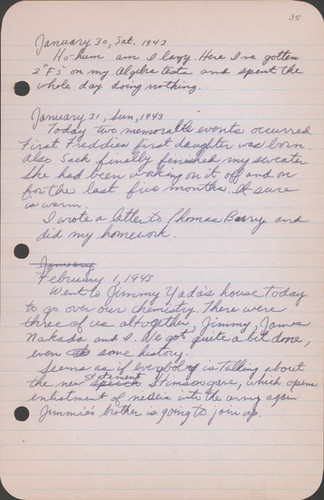 35
January 30, Sat. 1943
Ho-hum am I lazy. Here I've gotten
2 "F's" on my Algebra tests and spent the
whole day doing nothing.
January 31, Sun, 1943
Today two memorable events occurred.
First Freddie's first daughter was born.
Also Sach finally finished my sweater
She had been working on it off and on
for the last five months. It sure
is warm.
I wrote a letter to Thomas Berry and
did my homework.
January
February 1, 1943
Went to Jimmy Yada's house today
to go over our chemistry. There were
three of us altogether, Jimmy, James
Nakada and I. We got quite a bit done,
even some history.
Seems as if everybody is talking about
the new speech statement Stimson gave, which opens
enlistment of niseis into the army again.
Jimmie's brother is going to join up.